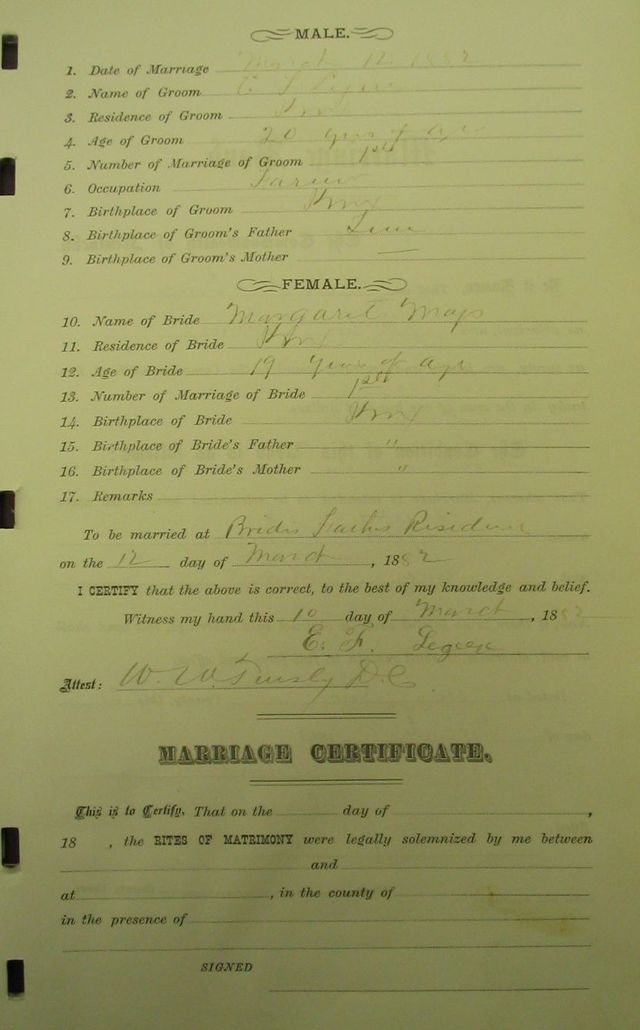 MALE.
1. Date of Marriage March 12 1882
2. Name of Groom E F
3. Residence of Groom Knox
4. Age of Groom 20 years of age
5. Number of Marriage of Groom 1st
6. Occupation Farmer
7. Birthplace of Groom Knox
8. Birthplace of Groom's Father
9. Birthplace of Groom's Mother —
FEMALE.
10. Name of Bride Margaret Mays
11. Residence of Bride Knox
12. Age of Bride 19 years of age
13. Number of Marriage of Bride 1st
14. Birthplace of Bride Knox
15. Birthplace of Bride's Father "
16. Birthplace of Bride's Mother "
17. Remarks
To be married at Brides Fathers Residence
on the 12 day of March, 1882
I CERTIFY that the above is correct, to the best of my knowledge and belief.
Witness my hand this 10 day of March, 1882
E. F.
Attest: W. W. Tinsley D.C.
MARRIAGE CERTIFICATE.
This is to Certify, That on the day of ,
18 , the RITES OF MATRIMONY were legally solemnized by me between
and
at , in the county of
in the presence of
SIGNED